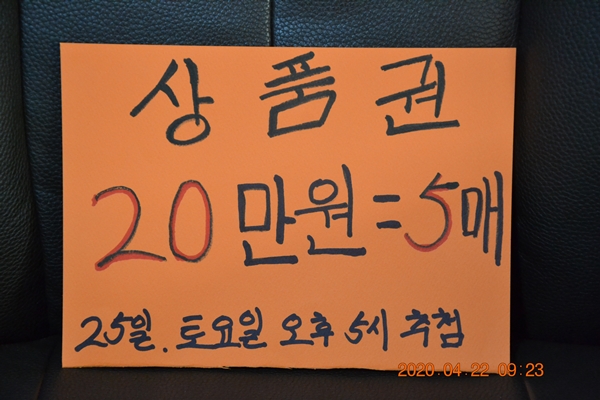 상품권
20만원=5매
25일. 토요일 오후 5시 추첨
2020.04.22 09:23